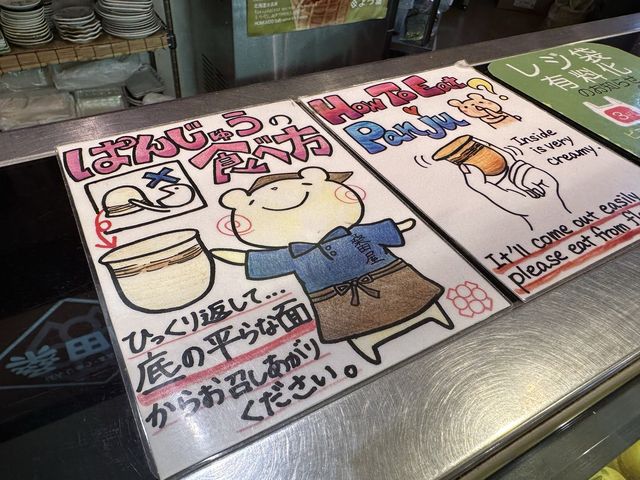 ぱんじゅうの
食べ方
ひっくり返して…
底の平らな面
からお召しあがり
ください。
HOW TO EAT
PanjU
?
Inside
is very
creamy.
It'll come out easily
please eat from
レジ袋
有料化